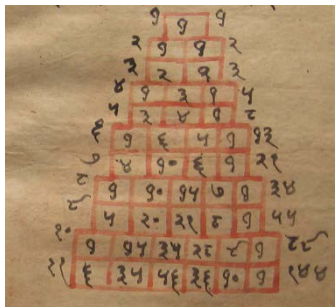 १ १ १
२ १ १ २
३ २ १ ३
४ १ ३ १ ५
५ ३ ४ १ ८
६ १ ६ ५ १ १३
७ ४ १० ६ १ २१
८ १ १० १५ ७ १ ३४
९ ५ २० २१ ८ १ ५५
१० १ १५ ३५ २८ ९ १ ८९
११ ६ ३५ ५६ ३६ १० १ १४४